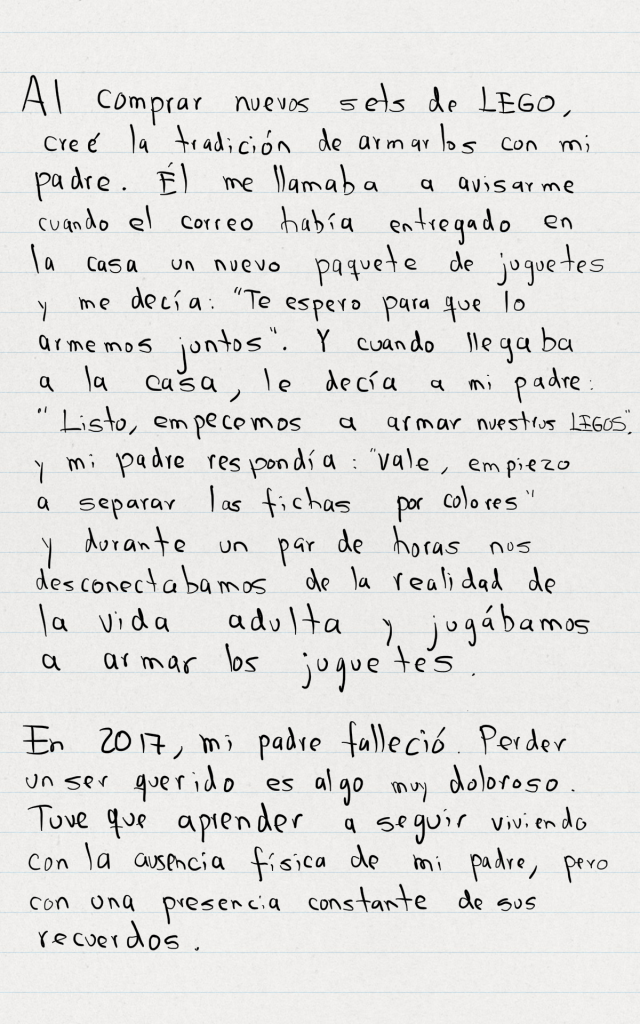 Al comprar nuevos sets de LEGO,
creé la tradición de armarlos con mi
padre. Él me llamaba a avisarme
cuando el correo había entregado en
la casa un nuevo paquete de juguetes
y me decía: "Te espero para que lo
armemos juntos". Y cuando llegaba
a la casa, le decía a mi padre:
"Listo, empecemos a armar nuestros LEGOS",
y mi padre respondía: "vale, empiezo
a separar las fichas por colores"
y durante un par de horas nos
desconectabamos de la realidad de
la vida adulta y jugábamos
a armar los juguetes.
En 2017, mi padre falleció. Perder
un ser querido es algo muy doloroso.
Tuve que aprender a seguir viviendo
con la ausencia física de mi padre, pero
con una presencia constante de sus
recuerdos.